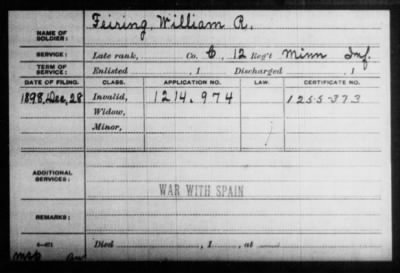 NAME OF SOLDIER: Feiring, William R.
SERVICE: Late rank, Co. C, 12 Reg't Minn Inf.
TERM OF SERVICE: Enlisted , 1 Discharged , 1
DATE OF FILING. CLASS. APPLICATION NO. LAW. CERTIFICATE NO.
1898, Dec, 28 Invalid, 1214.974 1255-373
Widow,
Minor,
ADDITIONAL SERVICES:
WAR WITH SPAIN
REMARKS:
Died , 1 , at